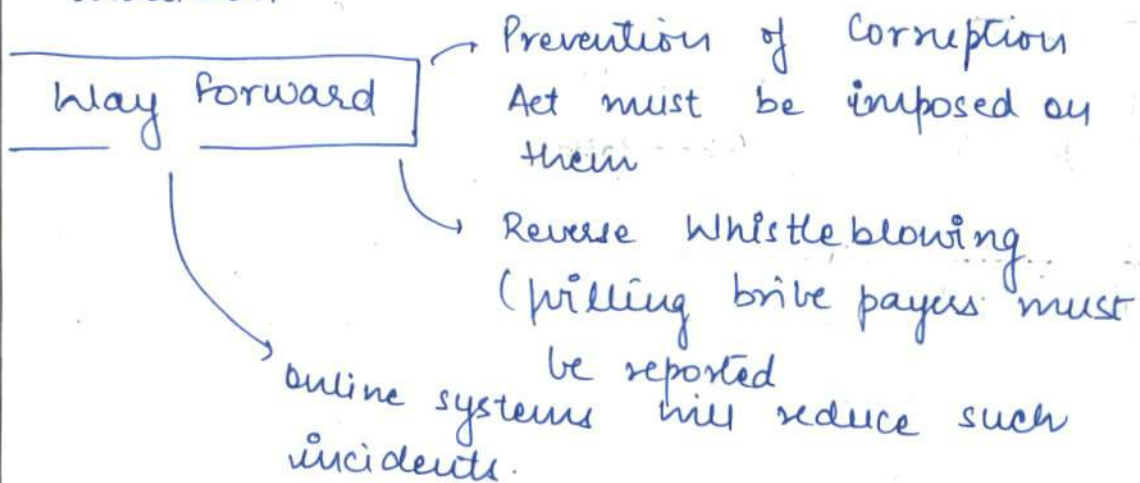 Way forward
Prevention of Corruption
Act must be imposed on
them
Reverse Whistleblowing
(willing bribe payers must
be reported
online systems will reduce such
incidents.